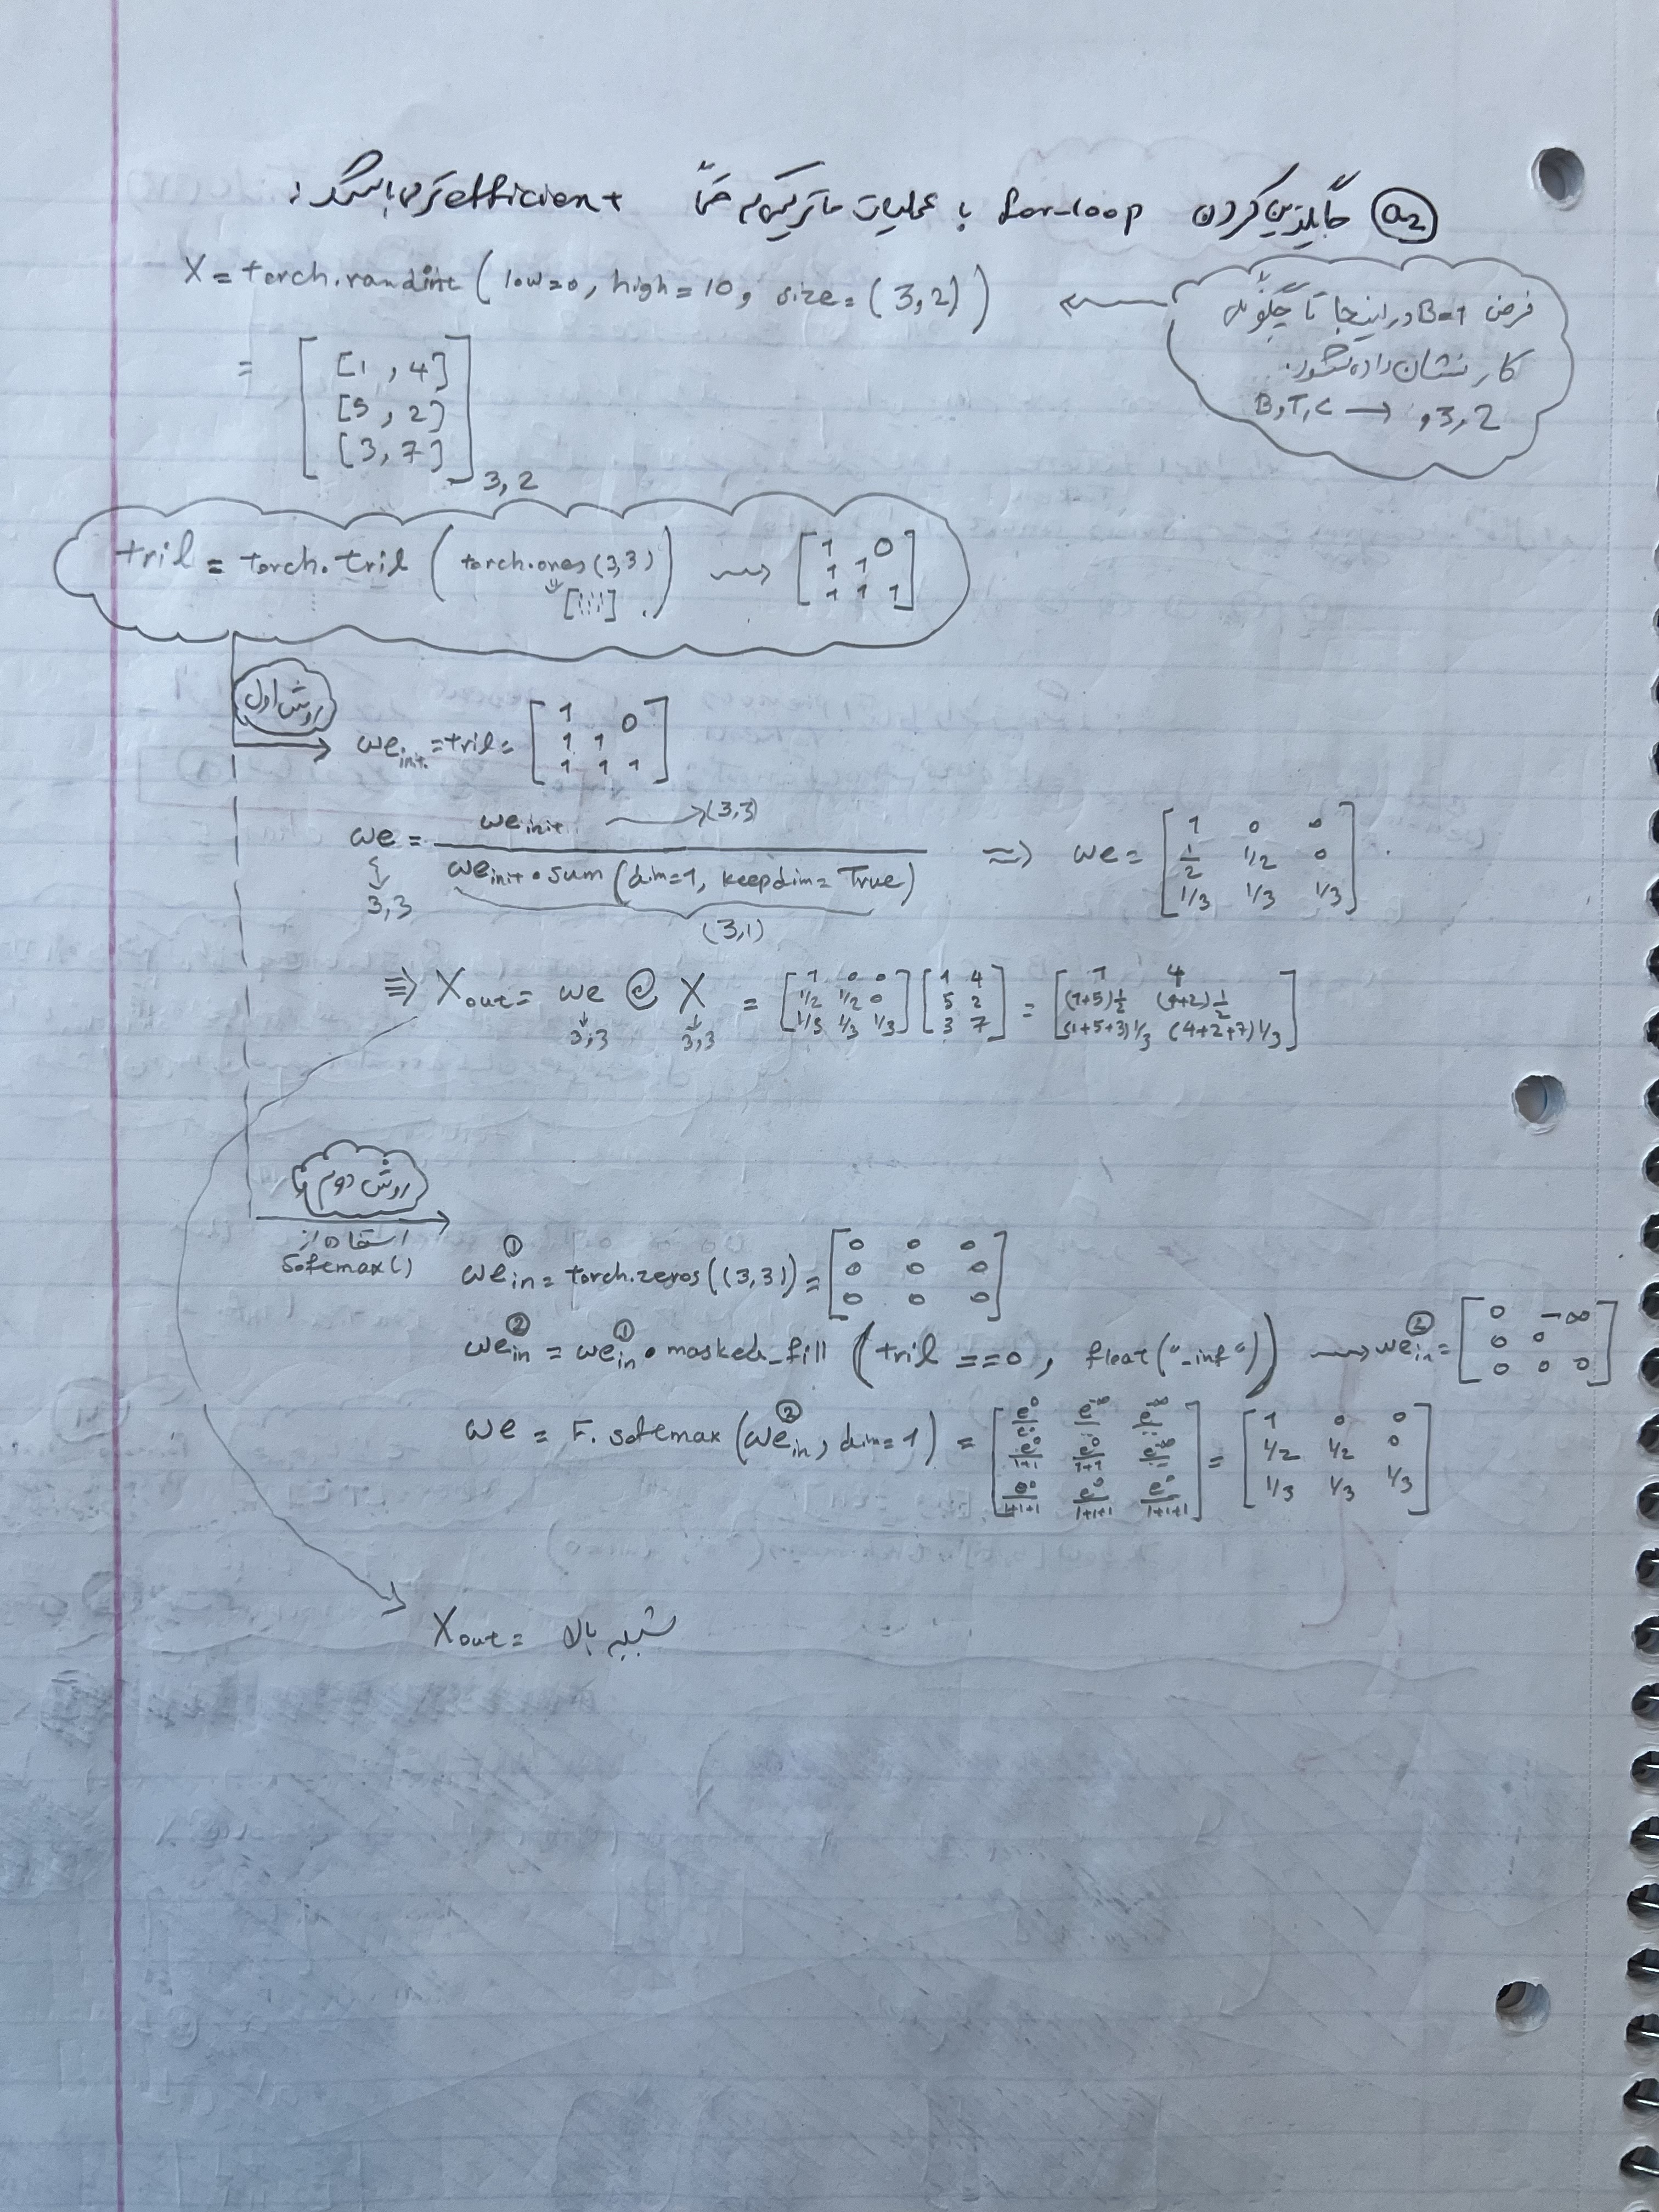 a2 جایگزین کردن for-loop با عملیات ماتریسی که efficient تر می باشد:
X = torch.randint(low=0, high=10, size=(3,2))
فرض B=1 در اینجا تا چگونگی
کار نشان داده شود.
B,T,C → ,3,2
= [[1, 4]
[5, 2]
[3, 7]] 3,2
tril = torch.tril(torch.ones(3,3)) ⇝ [1 0
1 1
1 1 1]
روش اول
we init. = tril = [1 0
1 1
1 1 1]
we = we init / we init.sum(dim=1, keepdim=True) ⇒ we = [1 0 0
1/2 1/2 0
1/3 1/3 1/3]
→(3,3)
3,3
(3,1)
⇛ Xout = we @ X = [1 0 0
1/2 1/2 0
1/3 1/3 1/3] [1 4
5 2
3 7] = [1 4
(1+5)1/2 (4+2)1/2
(1+5+3)1/3 (4+2+7)1/3]
3,3 3,3
روش دوم
استفاده از
Softmax()
we in ① = torch.zeros((3,3)) = [0 0 0
0 0 0
0 0 0]
we in ② = we in ①.masked_fill(tril == 0, float("-inf")) ⇝ we in ② = [0 -∞
0 0
0 0 0]
we = F.softmax(we in ②, dim=1) = [e^0/e^0 e^-∞/.. e^-∞/..
e^0/1+1 e^0/1+1 e^-∞/..
e^0/1+1+1 e^0/1+1+1 e^0/1+1+1] = [1 0 0
1/2 1/2 0
1/3 1/3 1/3]
Xout = شبیه بالا